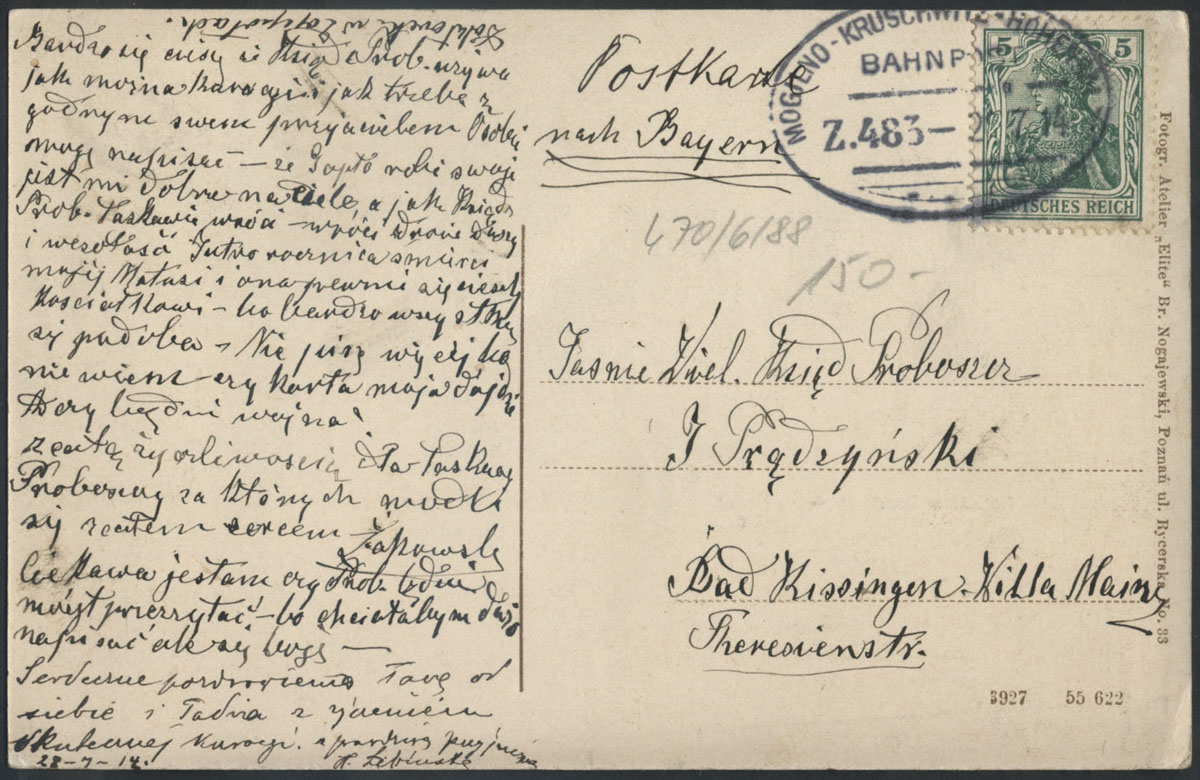 Bardzo się cieszę iż Ksiądz Prob. używa
jak można kuracji i jak trzeba z
godnym swem przyjacielem Osobą
mogę napisać – że Gopło robi swoje
jest mi dobrze na ciele, a jak Ksiądz
Prob. Łaskawie wróci – wróci zdrowie duszy
i wesołość Jutro rocznica śmierci
mojej Matusi i ona pewnie się cieszy
Kościółkowi – bo bardzo wszystkim
się podoba – Nie piszę więcej bo
nie wiem czy karta moja dojdzie
czy będzie wojna
z całą życzliwością dla Łaskawego
Proboszcza za których modli
się całem sercem
Ciekawa jestem czy Prob. będzie
mógł przeczytać – bo chciałabym dużo
napisać ale się boję –
Serdeczne pozdrowienia łączę od
siebie i Tadzia z życzeniem
skutecznej kuracji.
28-7-14.
Postkarte
nach Bayern
MOGILNO-KRUSCHWITZ-HOHENSALZA
BAHNPOST
Z.483 – 2 7.14
5 5
DEUTSCHES REICH
470/6/88
150-
Jaśnie Wiel. Ksiądz Proboszcz
J Prądzyński
Bad Kissingen. Villa Mainz
Theresienstr.
3927 55 622
Fotogr. Atelier „Elite“ Br. Nogajewski, Poznań ul. Rycerska No. 33